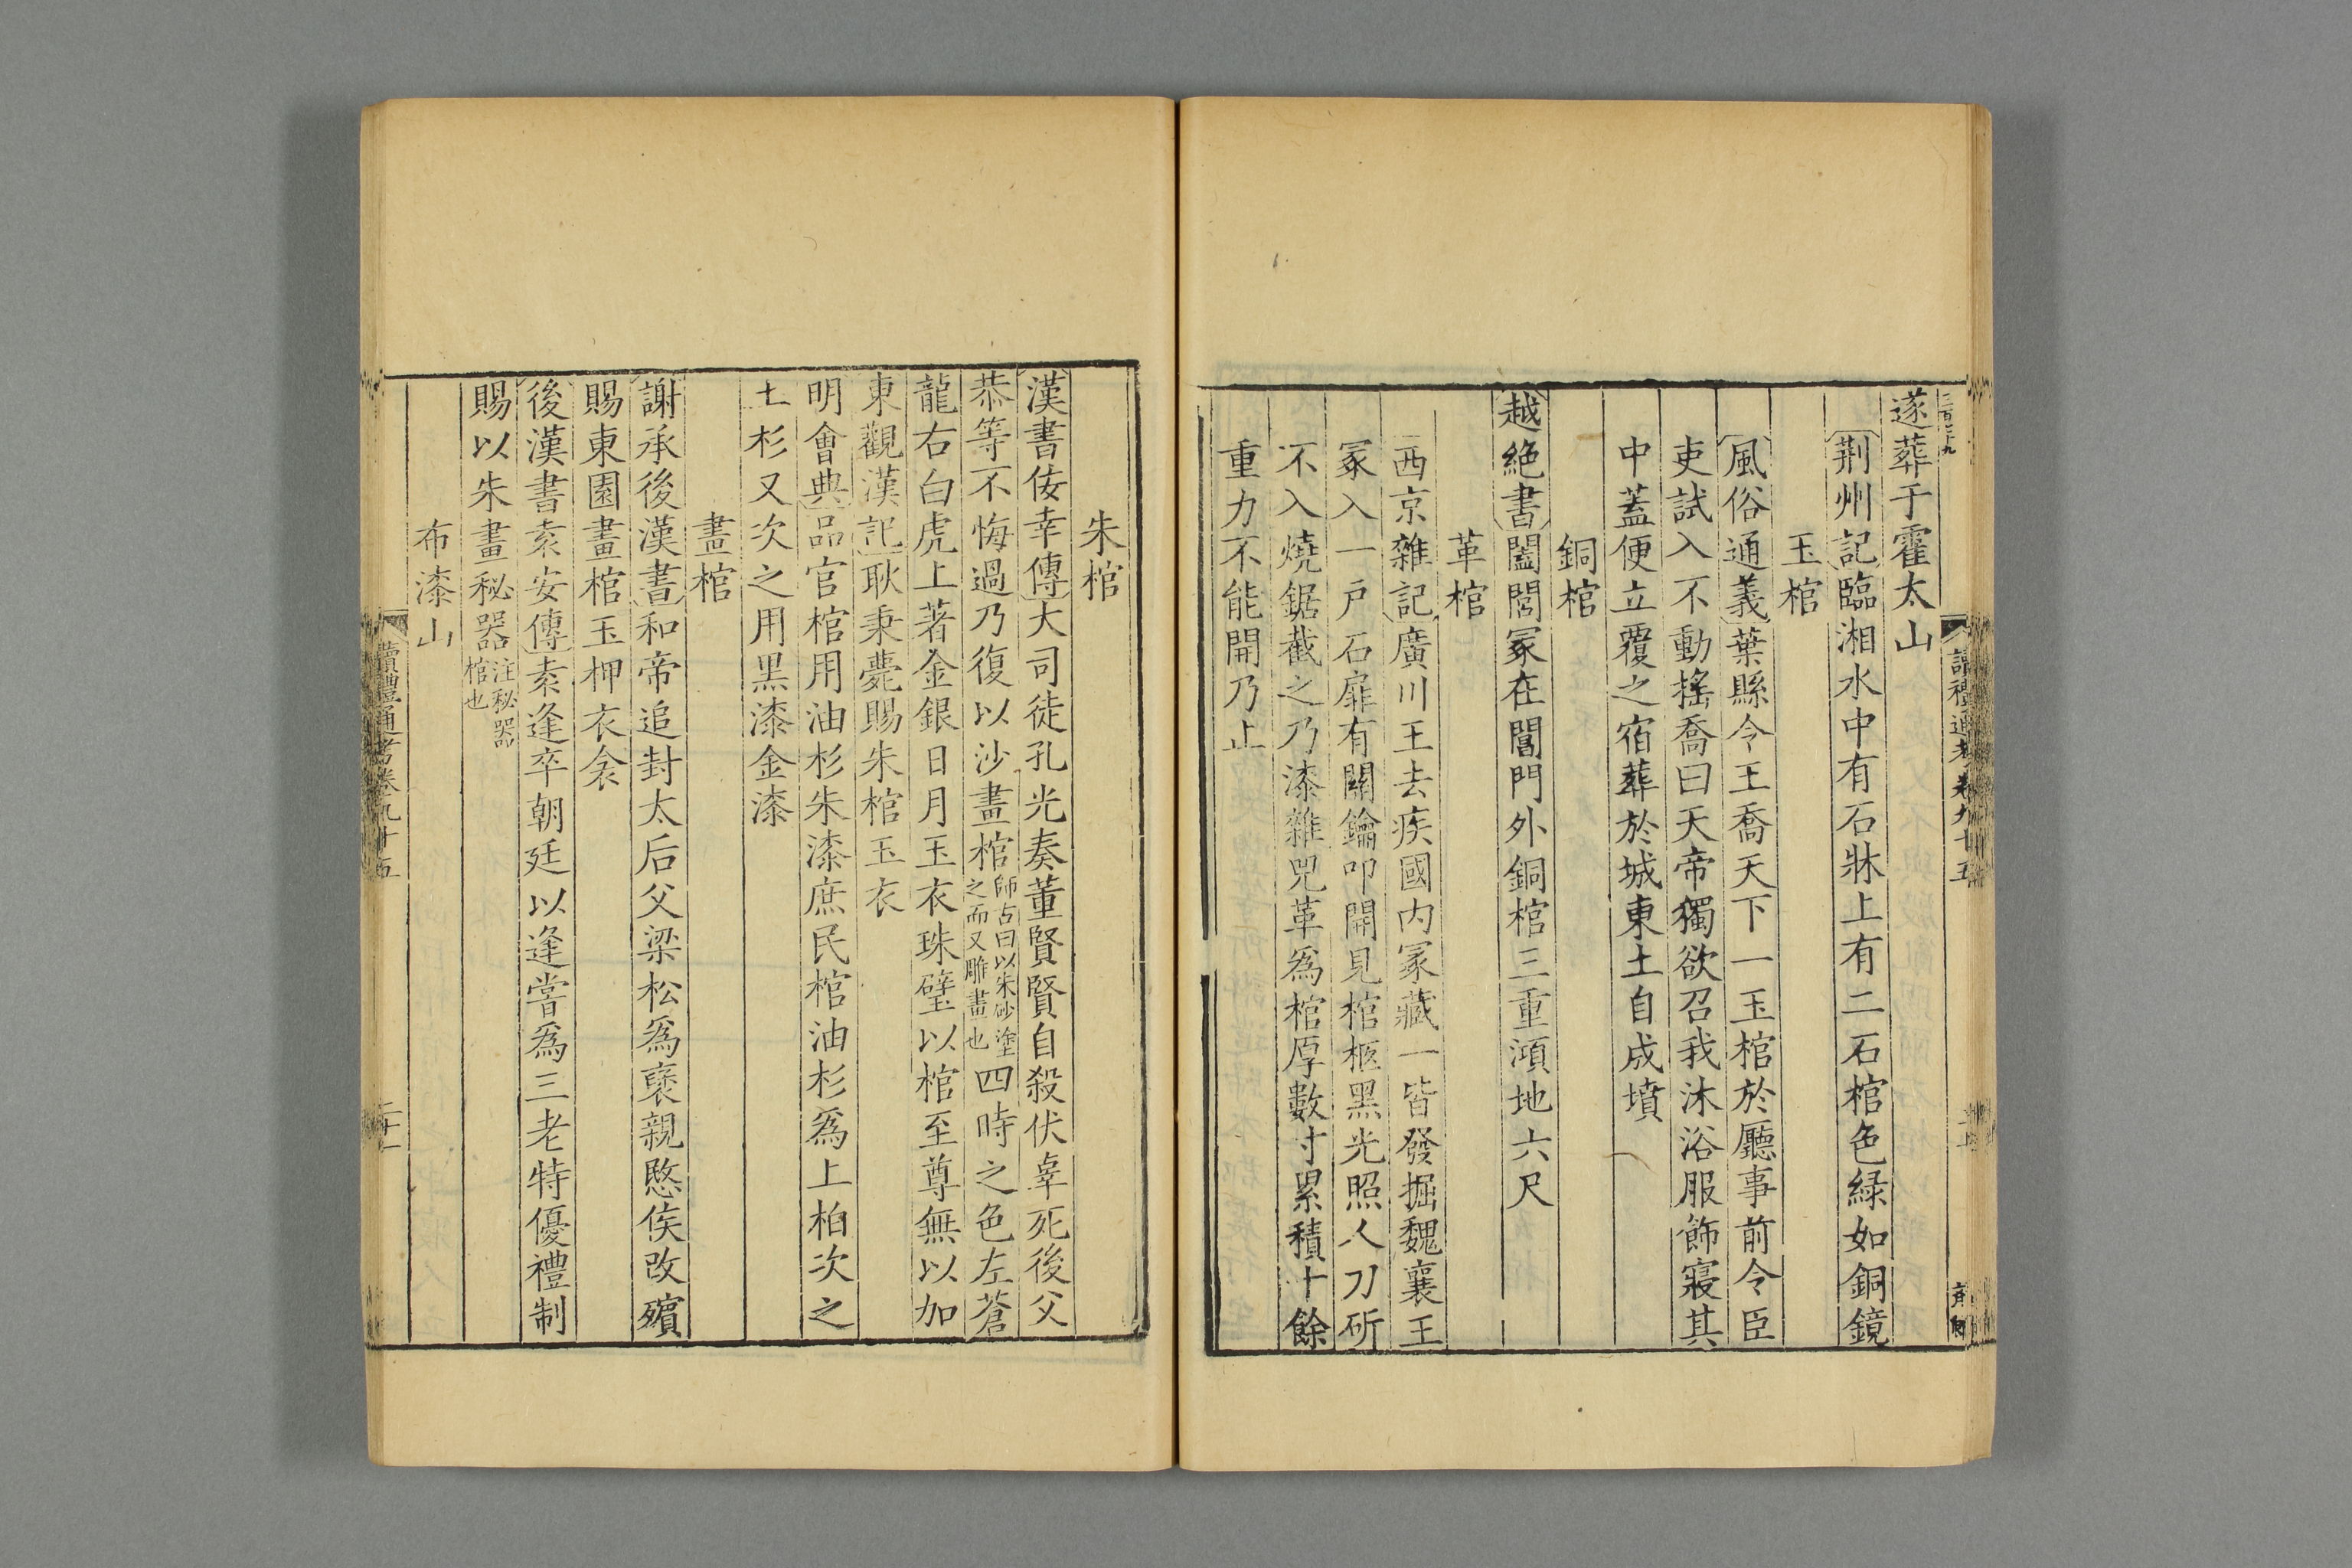 遂葬于霍太山
荆州記臨湘水中有石牀上有二石棺色緑如銅鏡
玉棺
風俗通義葉縣令王喬天下一玉棺於廳事前令臣
吏試入不動搖喬曰天帝獨欲召我沐浴服飾寢其
中蓋便立覆之宿葬於城東土自成墳
銅棺
越絶書闔閭冢在閶門外銅棺三重澒地六尺
革棺
西京雜記廣川王去疾國内冢藏一皆發掘魏襄王
冢入一戸石扉有關鑰叩開見棺柩黑光照人刀斫
不入燒鋸截之乃漆雜兕革爲棺厚數寸累積十餘
重力不能開乃止
朱棺
漢書佞幸傳大司徒孔光奏董賢賢自殺伏辜死後父
恭等不悔過乃復以沙畫棺師古曰以朱砂塗之而又雕畫也四時之色左蒼
龍右白虎上著金銀日月玉衣珠璧以棺至尊無以加
東觀漢記耿秉薨賜朱棺玉衣
明會典品官棺用油杉朱漆庶民棺油杉爲上柏次之
土杉又次之用黑漆金漆
畫棺
謝承後漢書和帝追封太后父梁松爲褒親愍侯改殯
賜東園畫棺玉柙衣衾
後漢書袁安傳袁逢卒朝廷以逢嘗爲三老特優禮制
賜以朱畫秘器注秘器棺也
布漆山
讀禮通考卷九十五